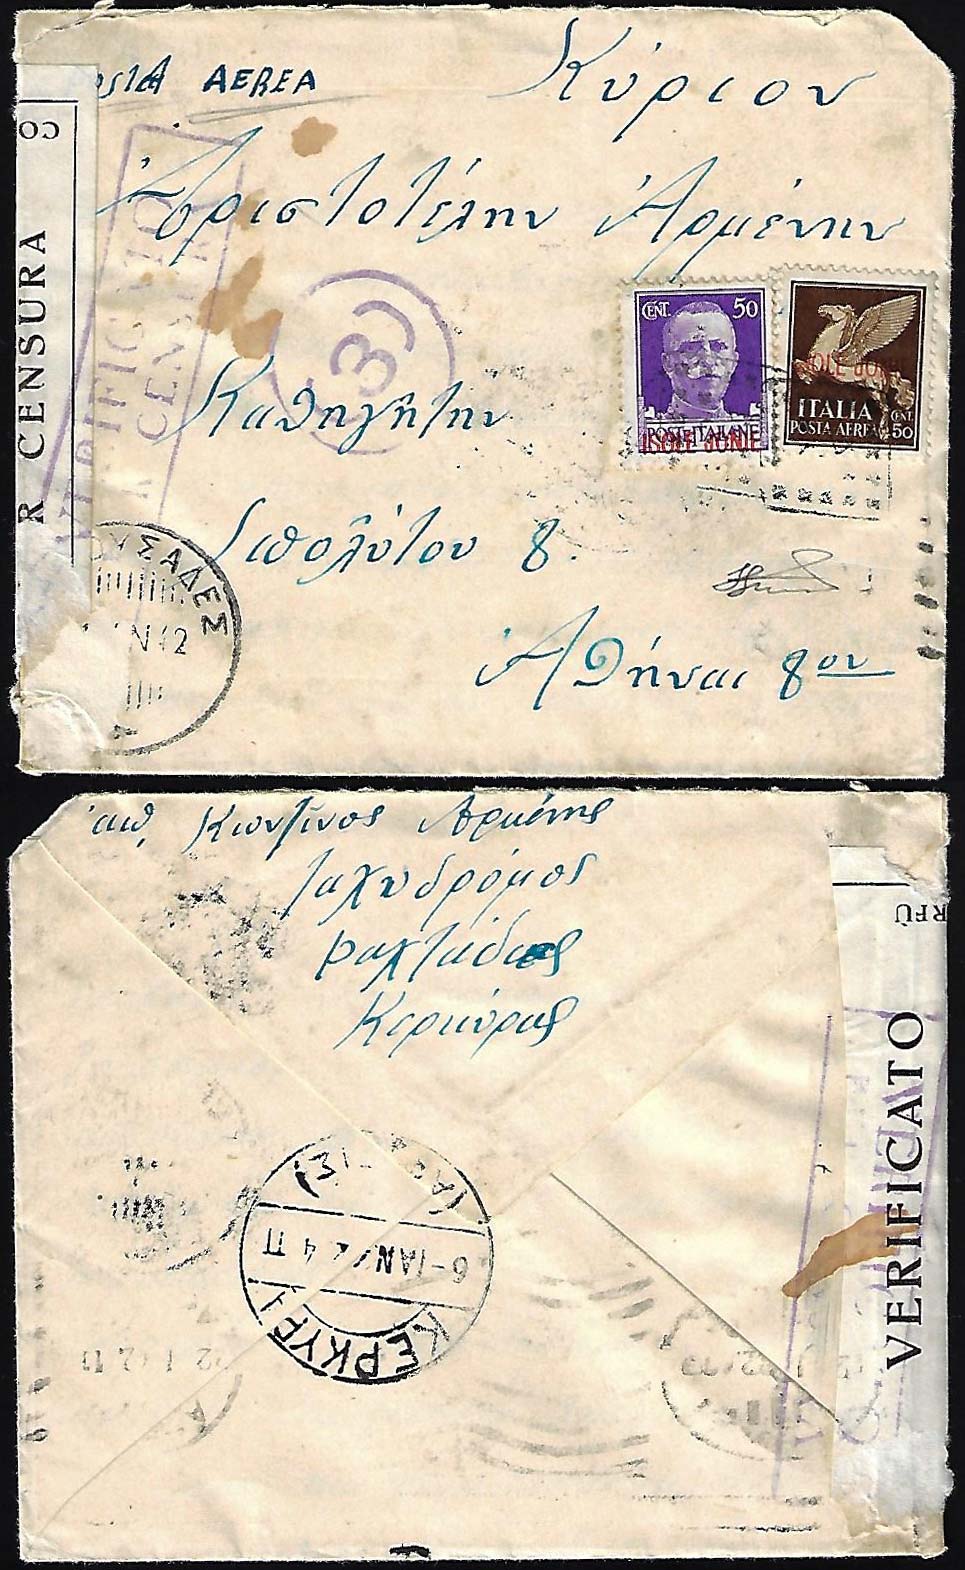 POSTA AEREA
Κύριον
Ἀριστοτέλην Ἀρμένην
Καθηγητήν
Ἱππολύτου 8.
Ἀθήναι 8ον
CO
R CENSURA
VERIFICATO
R CENSURA
3
CENT. 50
POSTE ITALIANE
ISOLE JONIE
ISOLE JONIE
ITALIA
POSTA AEREA
CENT. 50
ΥΣΑΔΕΣ
ΑΝ 42
ἀπ. Κων/τίνος Ἀρμένης
Ταχυδρόμος
Κερκύρας
ΚΕΡΚΥΡΑ
6-ΙΑΝ 42 4 Π
RFÙ
VERIFICATO